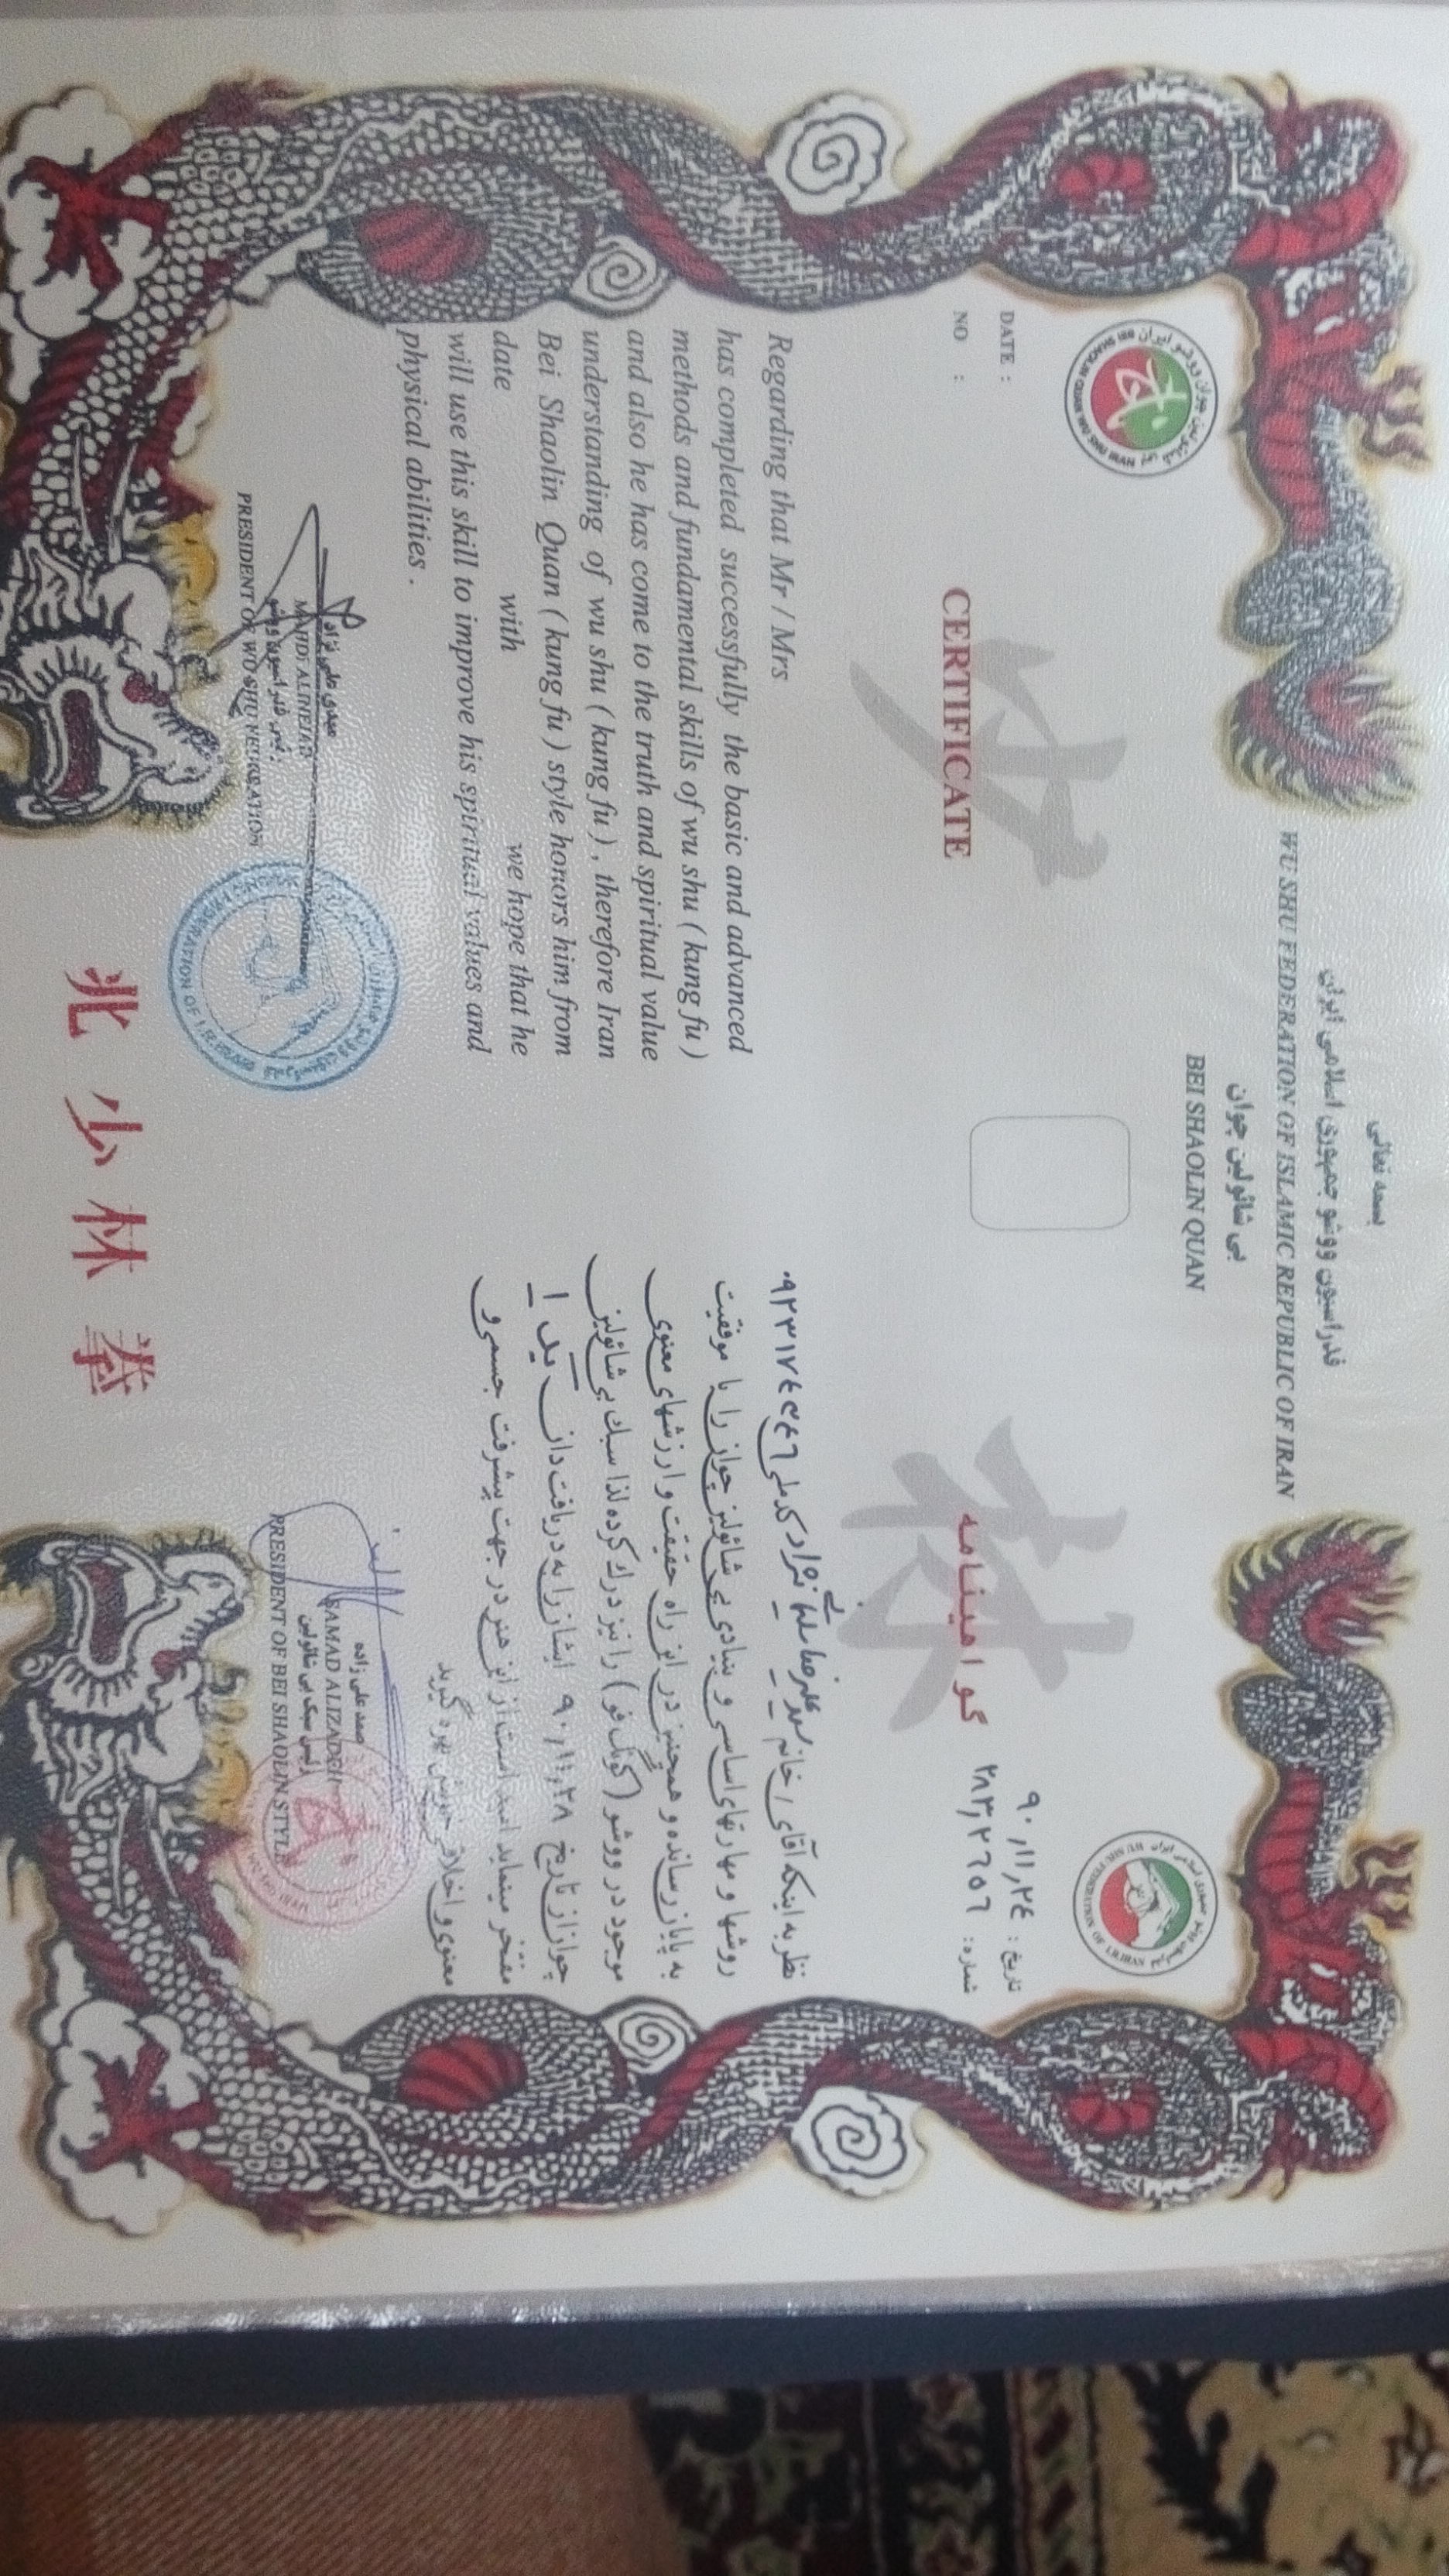 بسمه تعالی
فدراسیون ووشو جمهوری اسلامی ایران
WU SHU FEDERATION OF ISLAMIC REPUBLIC OF IRAN
بی شائولین چوان
BEI SHAOLIN QUAN
DATE :
NO :
CERTIFICATE
少
Regarding that Mr / Mrs
has completed successfully the basic and advanced
methods and fundamental skills of wu shu ( kung fu )
and also he has come to the truth and spiritual value
understanding of wu shu ( kung fu ) , therefore Iran
Bei Shaolin Quan ( kung fu ) style honors him from
date with we hope that he
will use this skill to improve his spiritual values and
physical abilities .
مهدی علی نژاد
MAHDI ALINEJAD
رئیس فدراسیون ووشو
PRESIDENT OF WO SHU FEDERATION
تاریخ : ۹۰,۱۱,۲۴
شماره : ۲۸۳,۲۶۲۵۶
گواهینامه
林
نظر به اینکه آقای / خانم سید علیرضا نژاد کد ملی
روشها و مهارتهای اساسی و بنیادی بی شائولین چوان را با موفقیت
به پایان رسانده و همچنین در این راه حقیقت و ارزشهای معنوی
موجود در ووشو ( کونگ فو ) را نیز درک کرده لذا سبک بی شائولین
چوان از تاریخ ۹۰,۱۱,۲۸ ایشان را به دریافت دان یک ۱
مفتخر مینماید امید است از این هنر در جهت پیشرفت جسمی و
معنوی و اخلاقی خویش بهره گیرید
صمد علی زاده
SAMAD ALIZADEH
رئیس سبک بی شائولین
PRESIDENT OF BEI SHAOLIN STYLE
北 少 林 拳